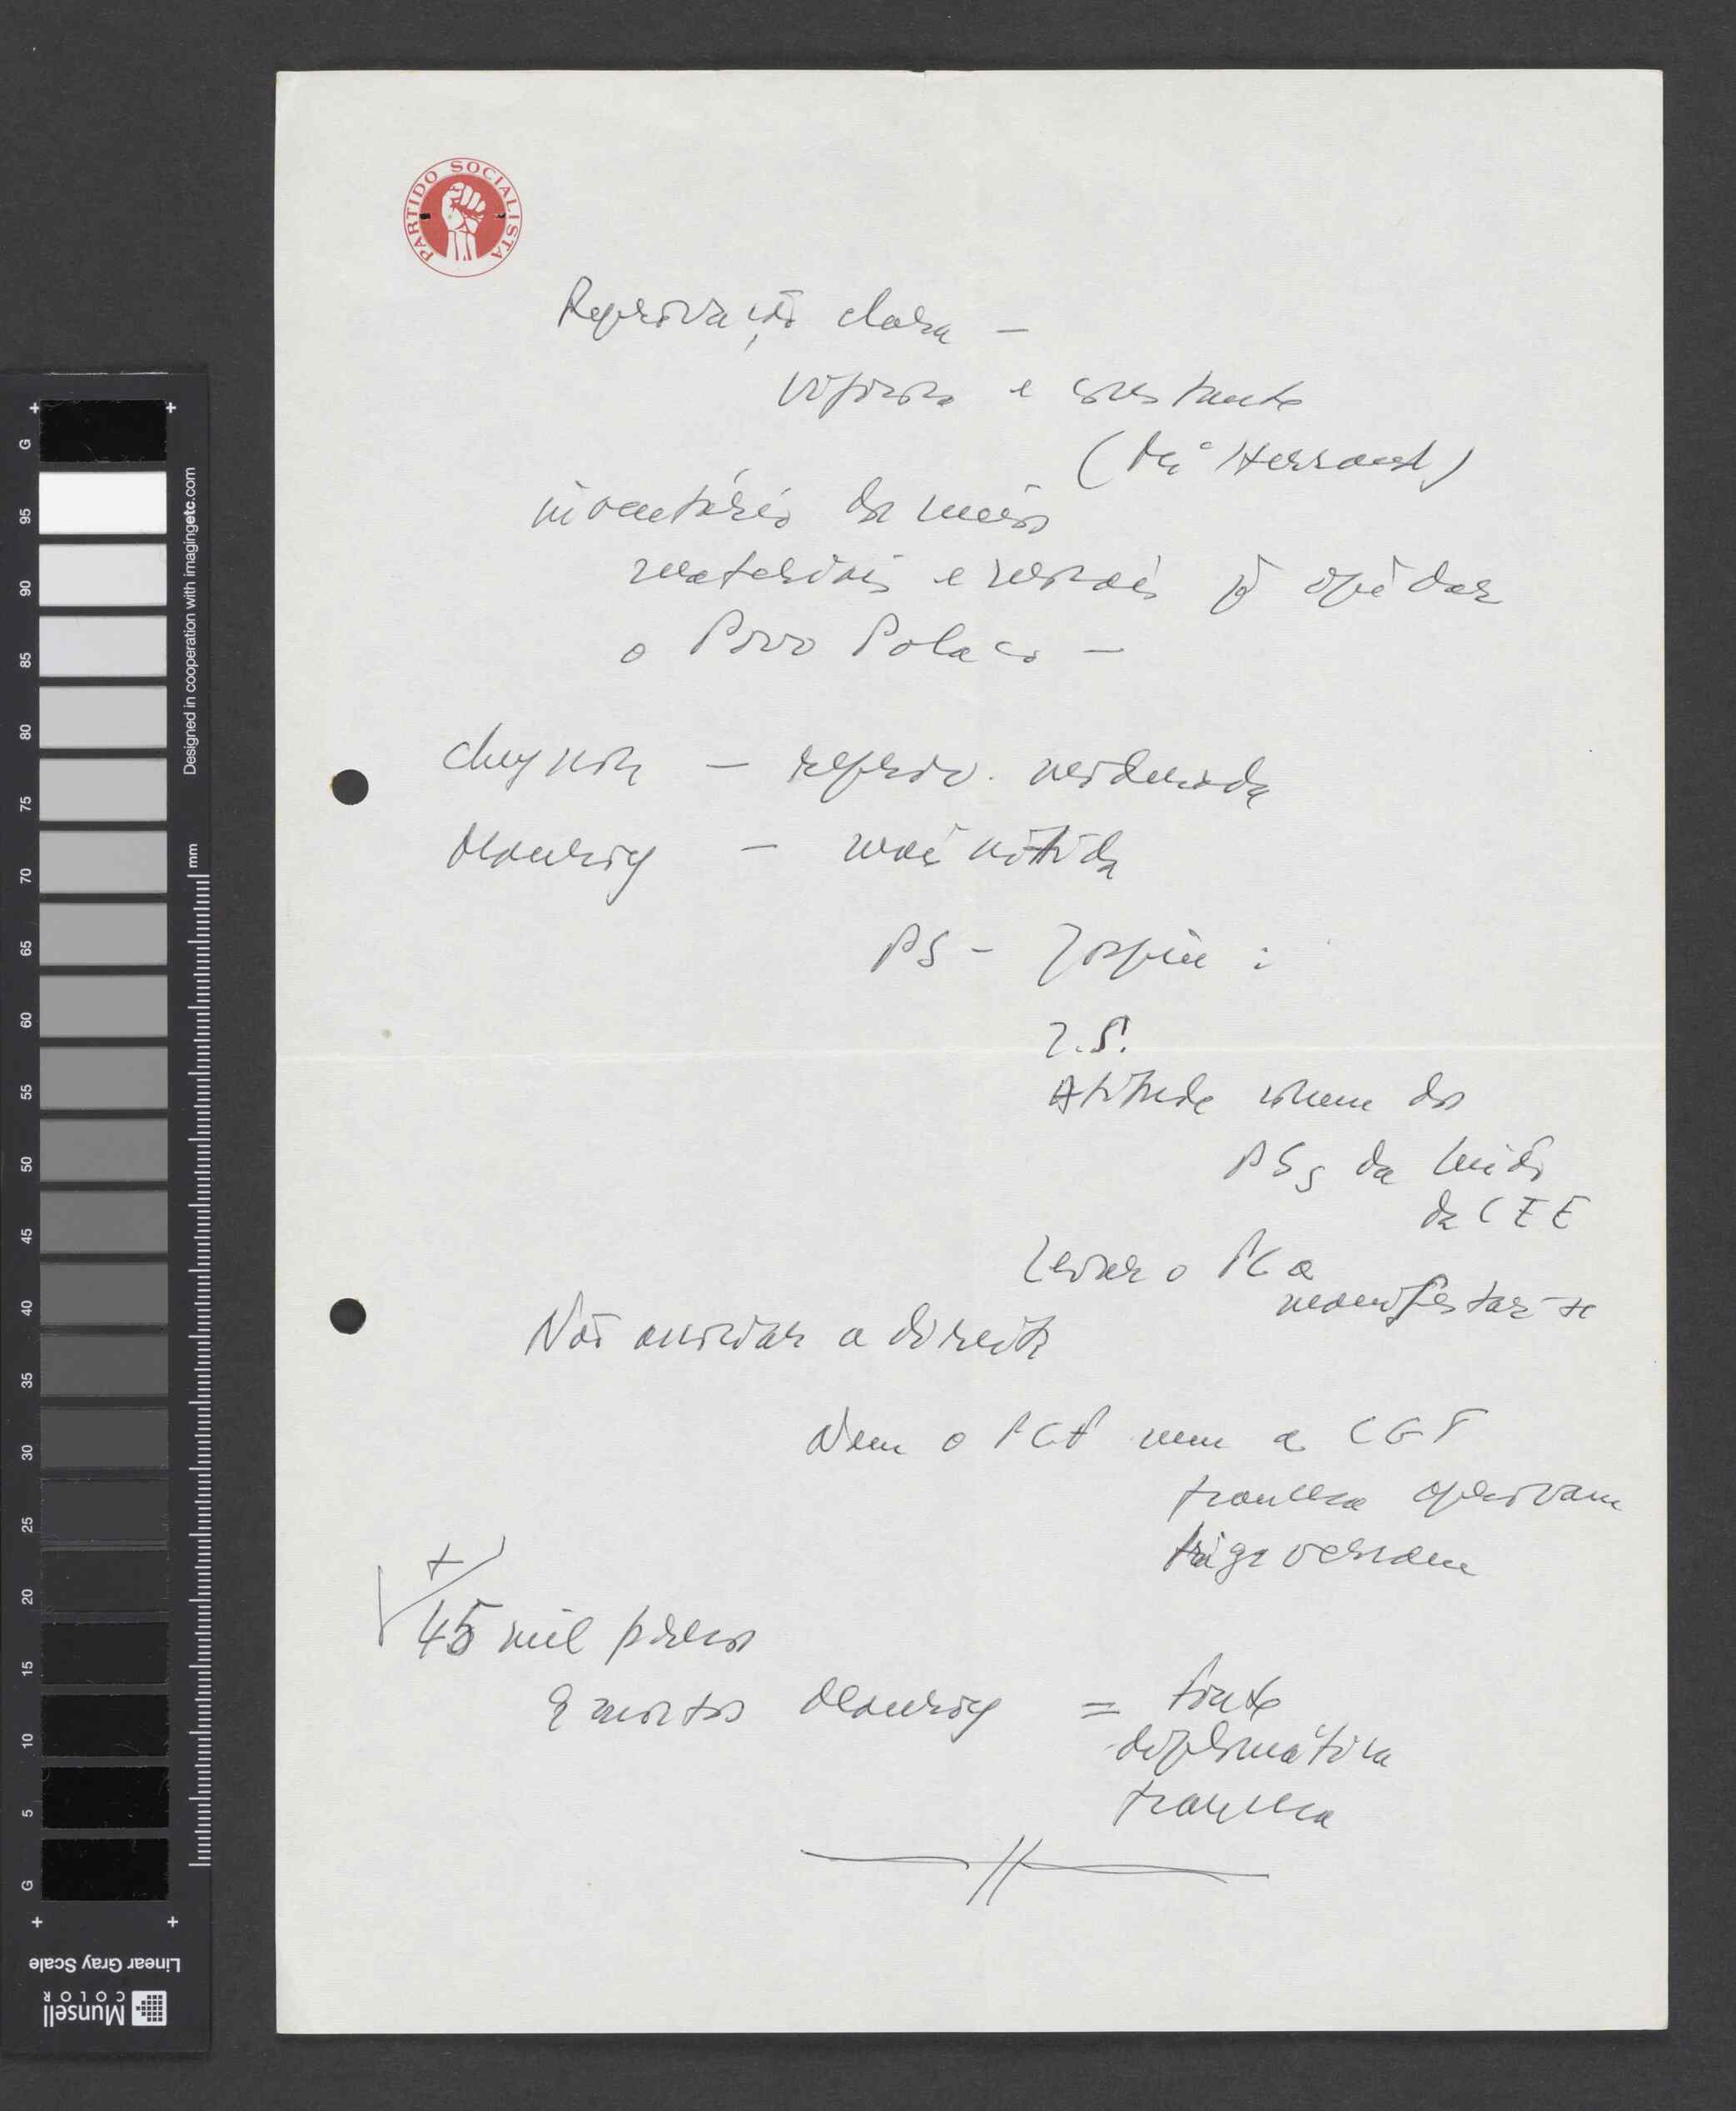 PARTIDO SOCIALISTA
Reprovação clara –
vigorosa e constante
(Miterrand)
inventário dos meios
materiais e morais pª ajudar
o Povo Polaco –
Cheysson – reprov. moderada
Mauroy – mais nítida
PS – Jospin :
I.S.
Atitude comum dos
PSs da União
da CEE
Levar o PC a
manifestar-se
Não acordar a direita
Nem o PCF nem a CGT
francesa aprovam
tergiversam
+
45 mil presos
9 mortos Mauroy = fonte
diplomática
francesa
Designed in cooperation with imagingetc.com
mm
G 95 90 85 80 75 70 65 60 55 50 45 40 35 30 25 20 15 10 5 G
Linear Gray Scale
Munsell
COLOR